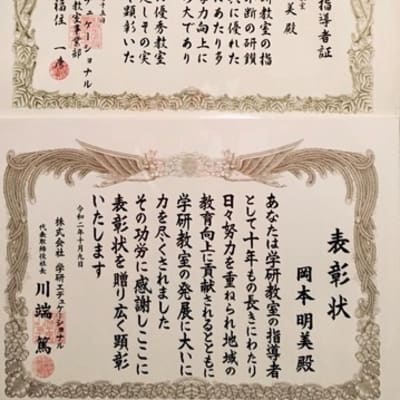 指導者証
美殿
研教室の指
断の研鎖
に優れた
にあたり多
学力向上に
の大であり
優秀教室
その実
顕彰いた
教室事業部
福住 一彦
表彰状
岡本 明美殿
あなたは学研教室の指導者
として十年もの長きにわたり
日々努力を重ねられ地域の
教育向上に貢献されるとともに
学研教室の発展に大いに
力を尽くされました
その功労に感謝しここに
表彰状を贈り広く顕彰
いたします
令和二年十月九日
株式会社 学研エデュケーショナル
代表取締役社長 川端 篤